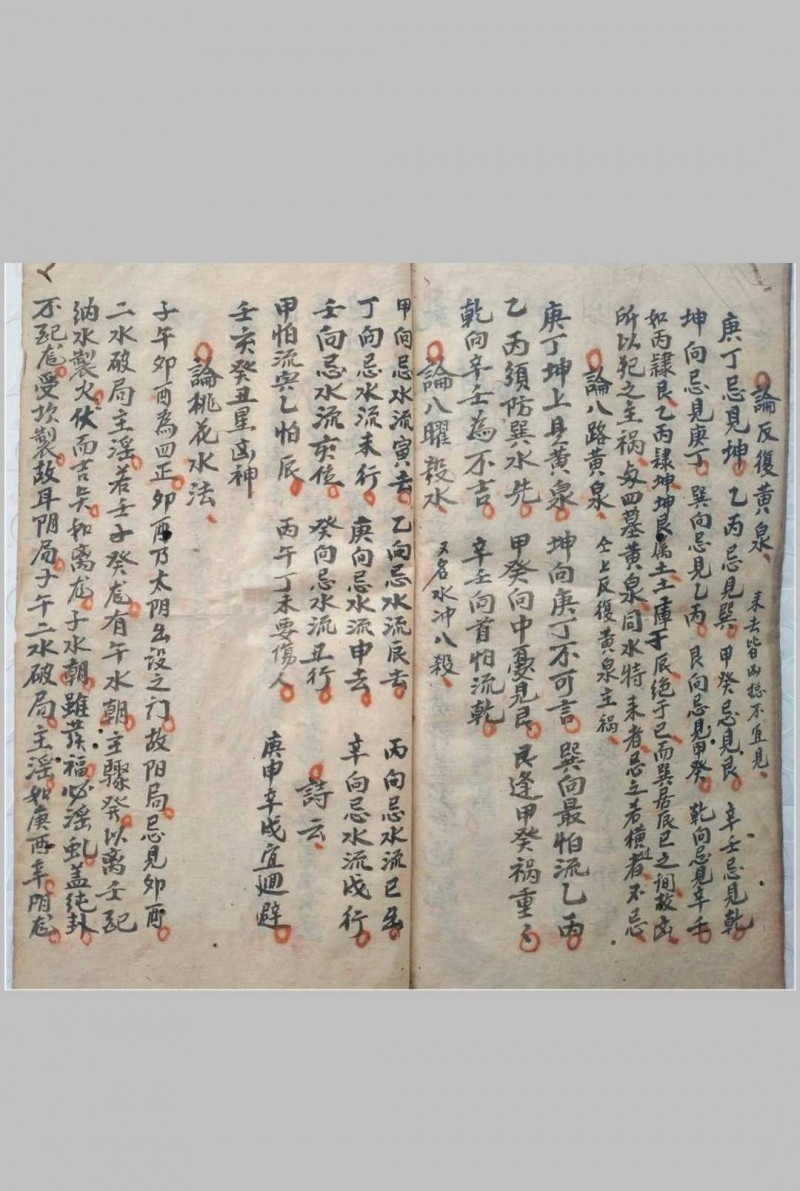 論反復黃泉、来去皆凶總不宜見、
庚丁忌見坤 乙丙忌見巽 甲癸忌見艮 辛壬忌見乾
坤向忌見庚丁 巽向忌見乙丙 艮向忌見甲癸 乾向忌見辛壬
如丙隷艮乙丙隷坤坤艮属土土庫于辰绝于巳而巽居辰巳之間故凶
所以犯之主禍与四墓黃泉同水特来者忌之若横過者不忌
論八路黃泉、仝上反復黃泉主禍、
庚丁坤上是黃泉 坤向庚丁不可言 巽向最怕流乙丙
乙丙須防巽水先 甲癸向中憂見艮 艮逢甲癸祸重々
乾向辛壬為不吉 辛壬向首怕流乾
論八曜殺水、又名水冲八殺、
甲向忌水流寅去 乙向忌水流辰去 丙向忌水流巳去
丁向忌水流未行 庚向忌水流申去 辛向忌水流戌行
壬向忌水流亥位 癸向忌水流丑行 詩云、
甲怕流寅乙怕辰 丙午丁未要傷人 庚申辛戌宜迴避
壬亥癸丑星凶神
論桃花水法、
子午卯酉為四正卯酉乃太阴出没之门故阳局忌見卯酉
二水破局主淫若壬子癸龙有午水朝主驟癸以离壬配
納水製火伏而吉矣如离龙子水朝雖發福必淫乱盖純卦
不配龙受坎製故耳阴局子午二水破局主淫如庚酉辛阴龙